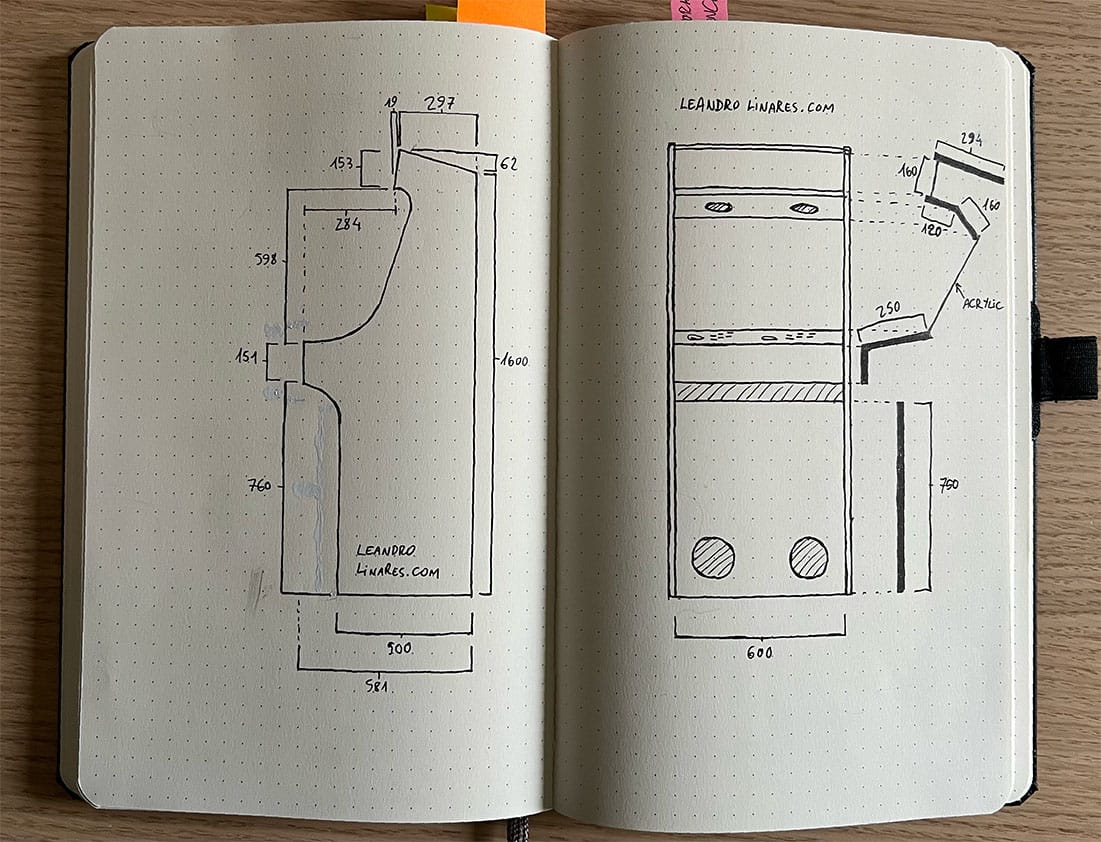 19
297
153
62
284
598
151
1600
760
LEANDRO
LINARES.COM
900
581
LEANDRO LINARES.COM
294
160
160
120
ACRYLIC
250
750
600